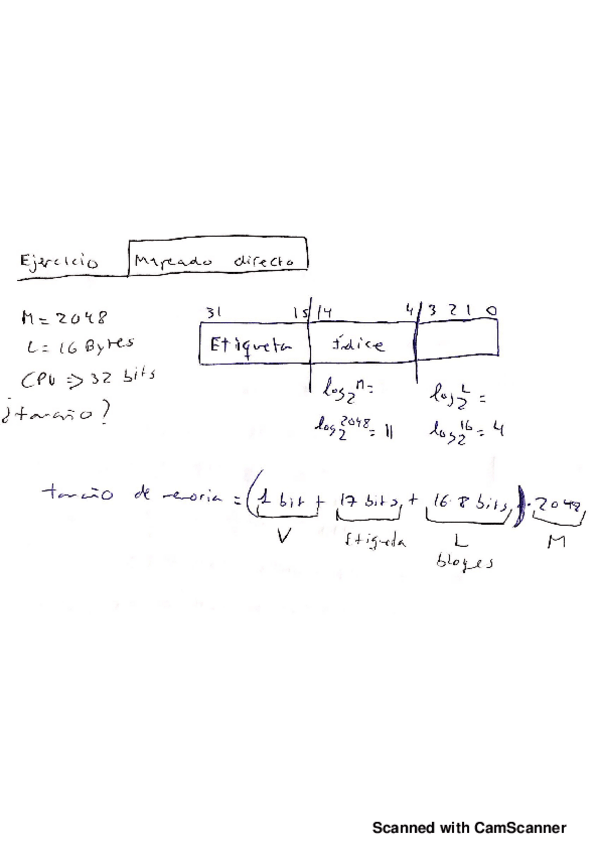 Ejercicio Mapeado directo
M = 2048
L = 16 Bytes
CPU => 32 bits
¿tamaño?
31 15 14 4 3 2 1 0
Etiqueta Índice
log₂ M = log₂ L =
log₂ 2048 = 11 log₂ 16 = 4
tamaño de memoria = (1 bit + 17 bits + 16·8 bits)·2048
V Etiqueta L M
bloques
Scanned with CamScanner